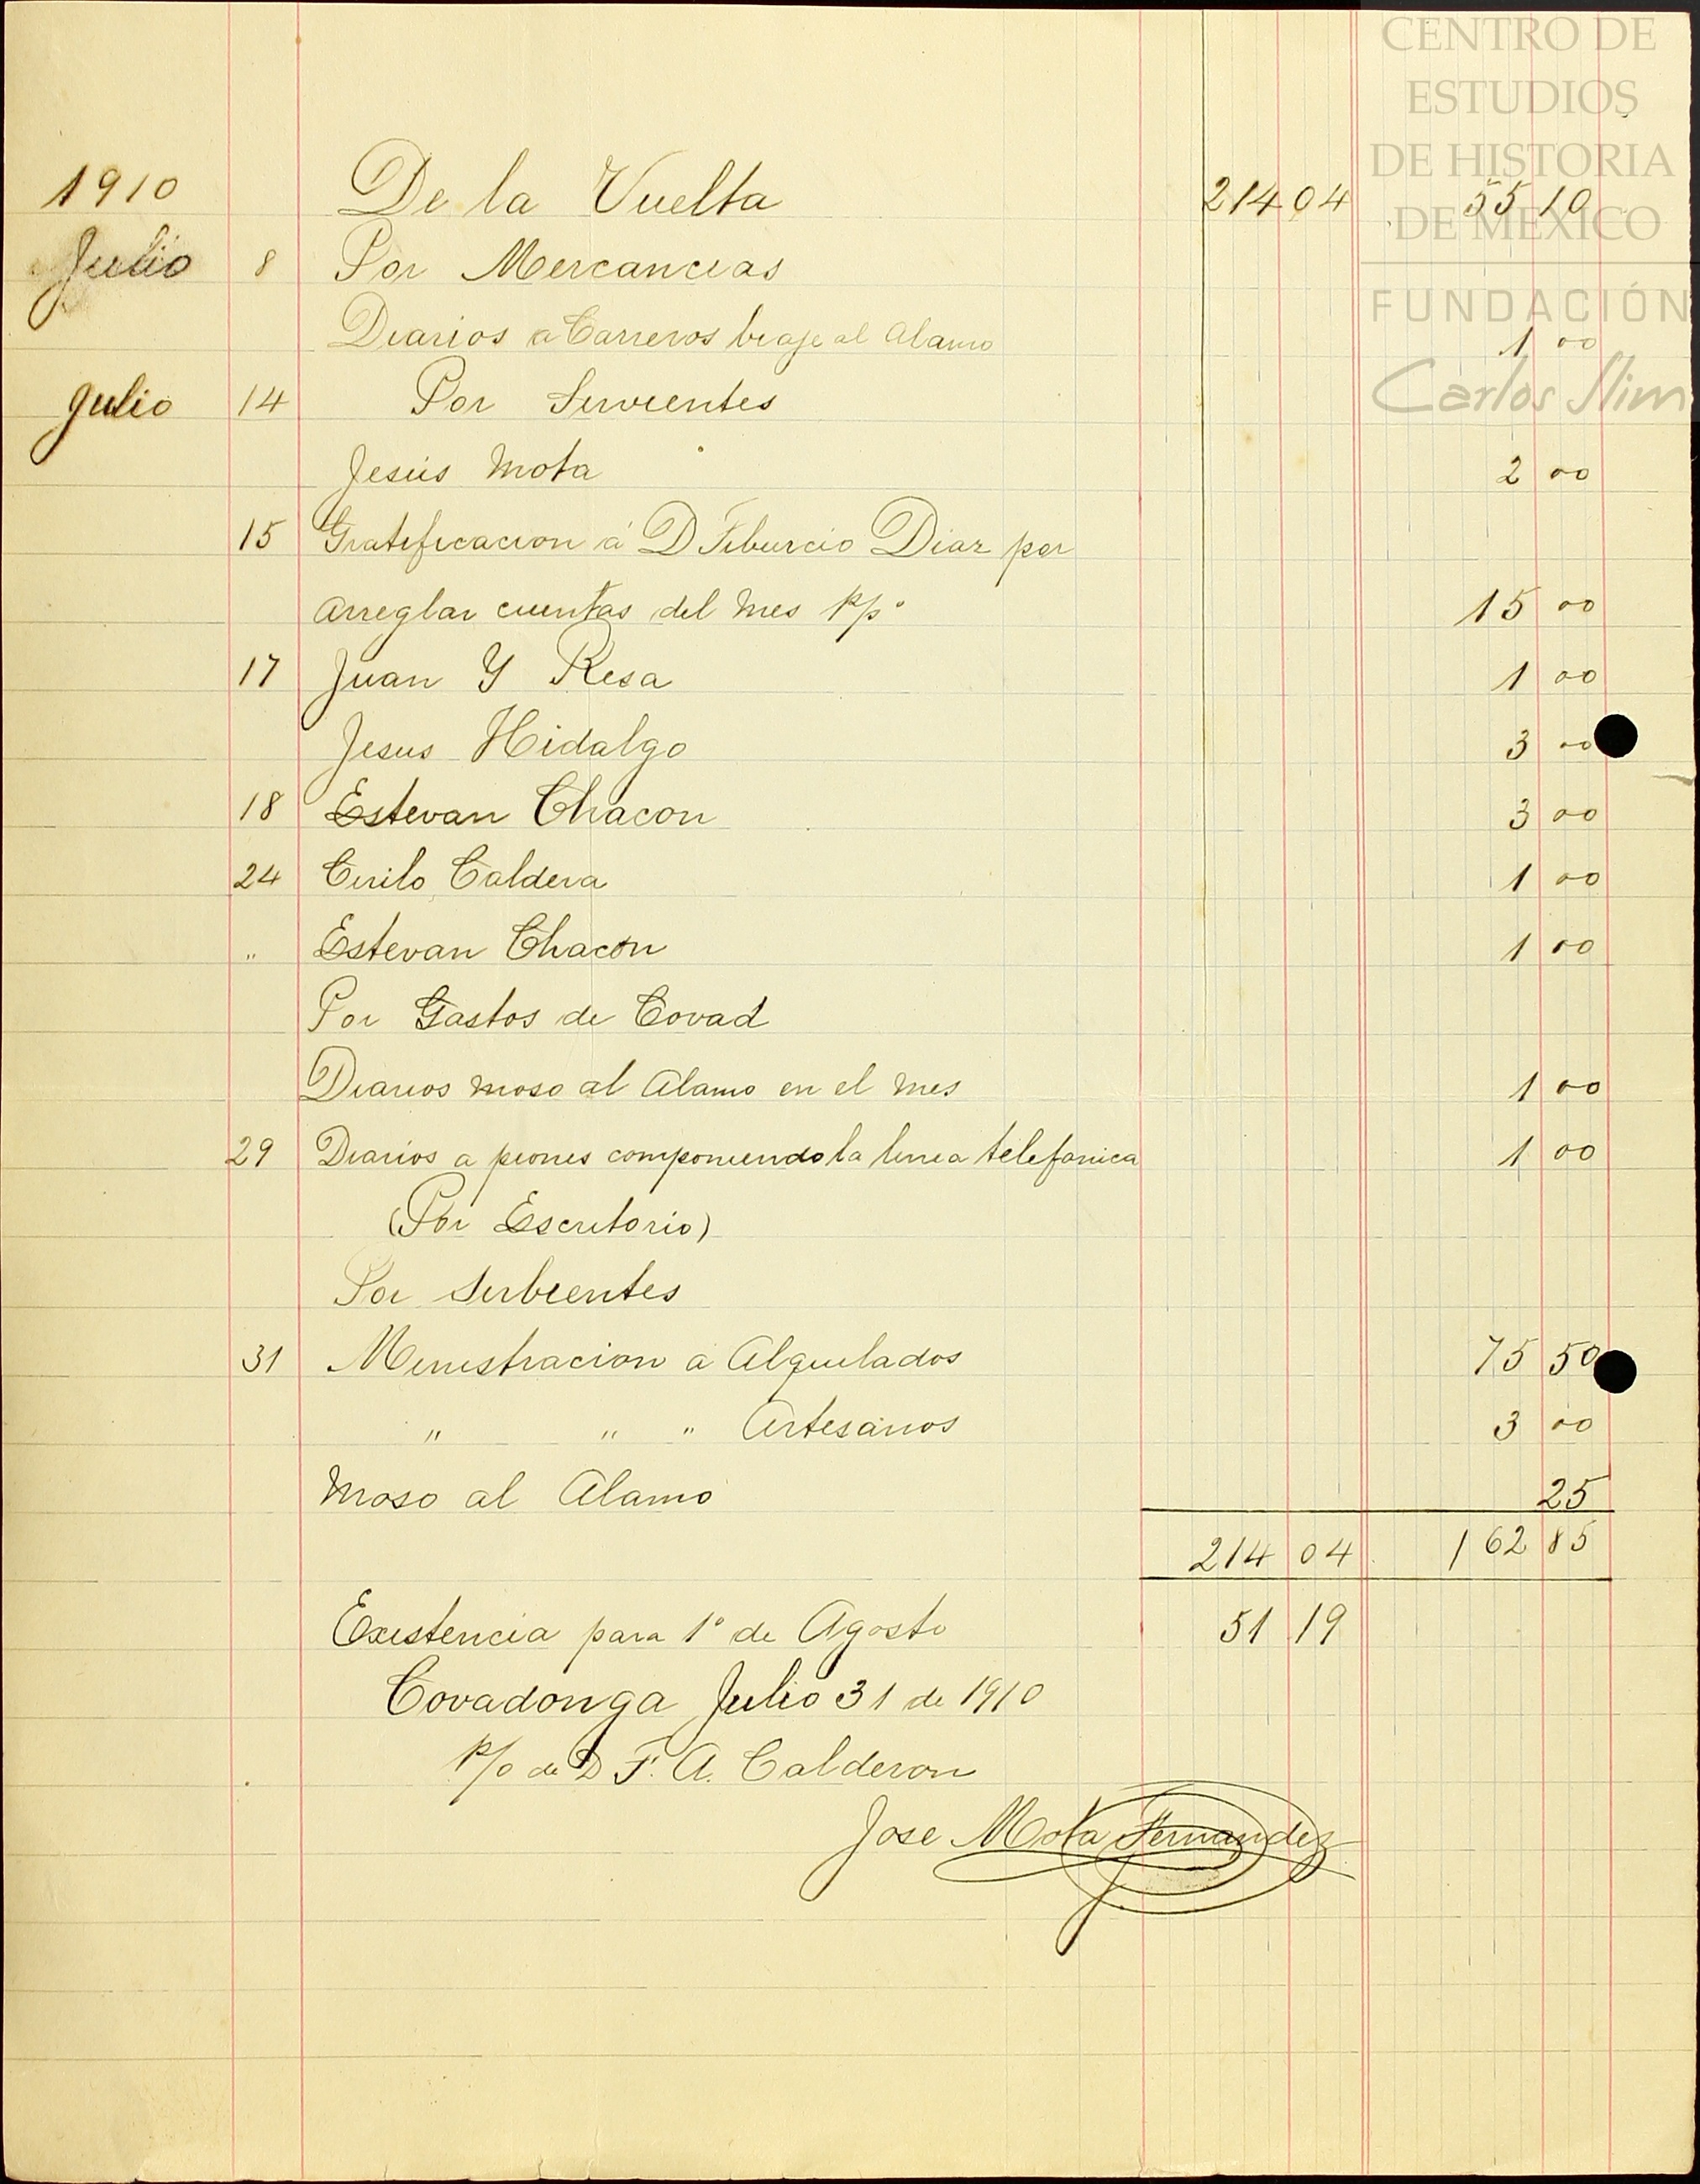 CENTRO DE
ESTUDIOS
DE HISTORIA
DE MÉXICO
FUNDACIÓN
Carlos Slim
1910 De la Vuelta 214 04 55 10
Julio 8 Por Mercancias
Diarios a Carreros biaje al Alamo 1 00
Julio 14 Por Sirvientes
Jesús Mota 2 00
15 Gratificacion á D Tiburcio Diaz por
arreglar cuentas del mes p/p° 15 00
17 Juan Y Resa 1 00
Jesus Hidalgo 3 00
18 Estevan Chacon 3 00
24 Cirilo Caldera 1 00
" Estevan Chacon 1 00
Por Gastos de Covad
Diarios moso al Alamo en el mes 1 00
29 Diarios a piones componiendo la linea telefonica 1 00
(Por Escritorio)
Por Serbientes
31 Menistracion a Alquilados 75 50
" " " Artesanos 3 00
Moso al Alamo 25
214 04 162 85
Existencia para 1° de Agosto 51 19
Covadonga Julio 31 de 1910
P/o de D F. A. Calderon
Jose Mota Fernandez